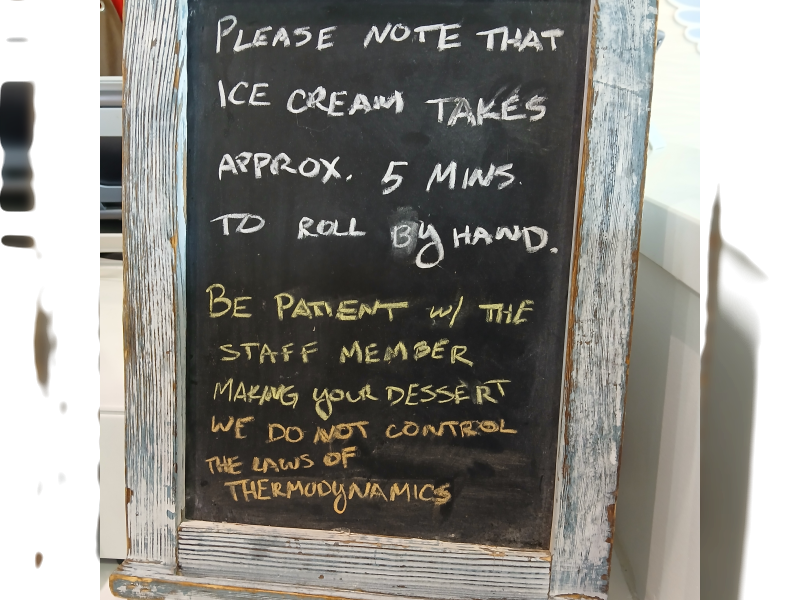 PLEASE NOTE THAT
ICE CREAM TAKES
APPROX. 5 MINS.
TO ROLL By HAND.
BE PATIENT w/ THE
STAFF MEMBER
MAKING yOUR DESSERT
WE DO NOT CONTROL
THE LAWS OF
THERMODyNAMICS